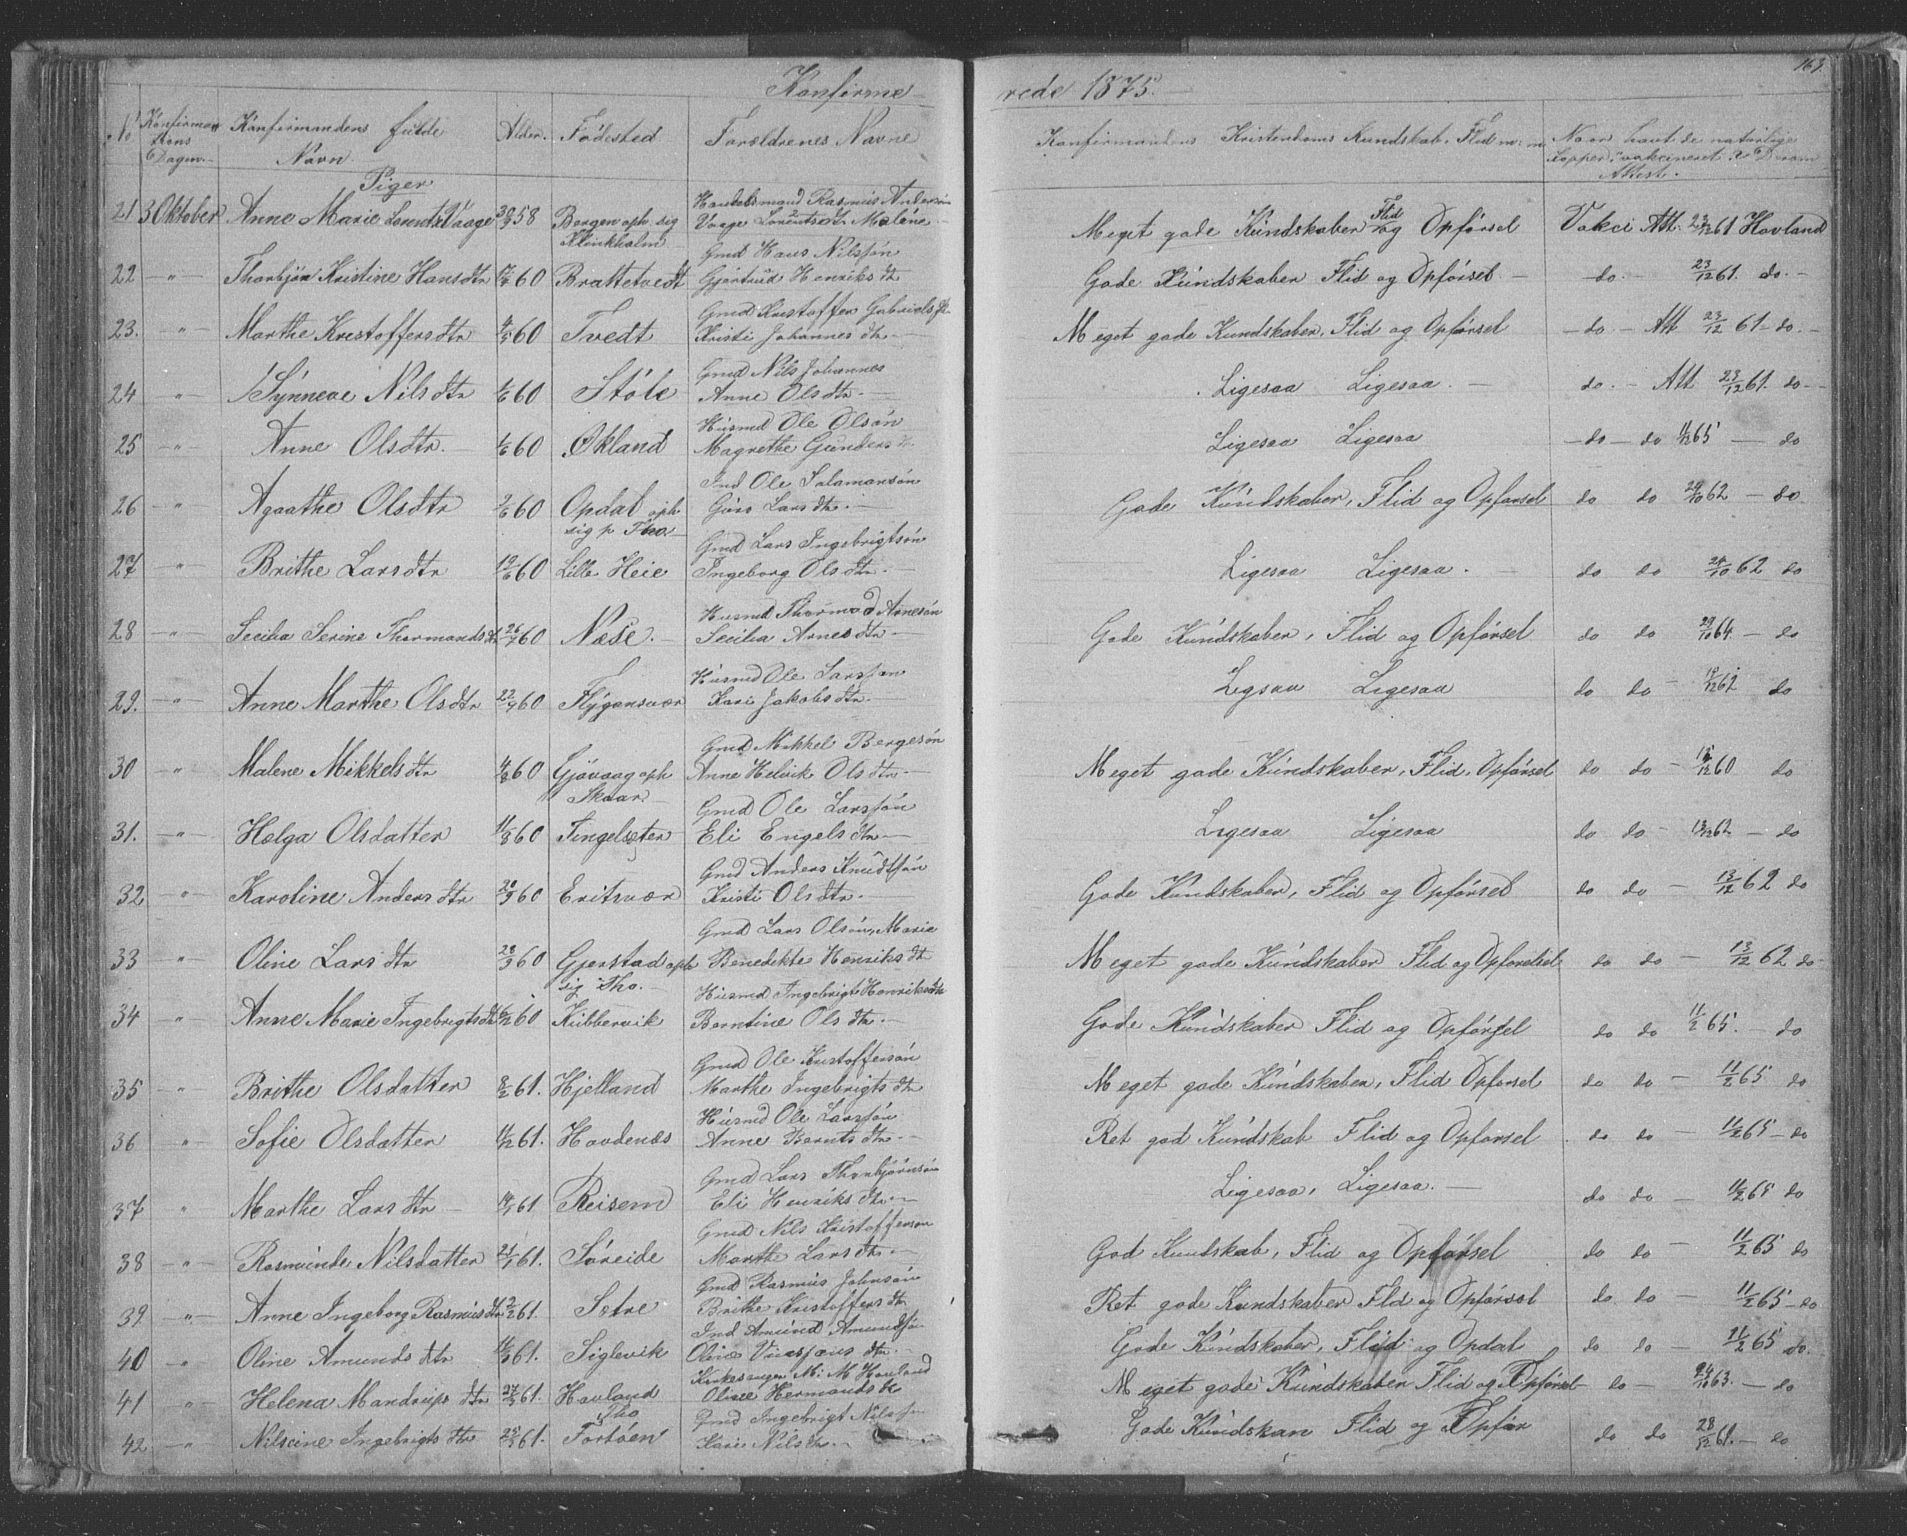 Konfirmerede 1875.
163.
No Konfirmations Dagen. Konfirmandens fulde Navn Alder. Fødested Forældrenes Navne Konfirmandens Kristendoms Kundskab, Flid m: m Naar havt de naturlige Kopper, vakcineret? Attest.
Piger
21 3 Oktober Anne Marie Vaage 58 Bergen oph. sig Handelsmand Rasmus Andersen Vaage Malene Meget gode Kundskaber Flid og Opførsel Vakci Att. 23/12 61 Hovland
22 -"- Kristine Hansdtr 60 Brattetvedt Gmd Hans Nilssøn Gjertrud Henriksdtr Gode Kundskaber Flid og Opførsel - do. - 23/12 61. do. -
23. -"- Marthe Kristoffersdtr 60 Tvedt Gmd Kristoffer Kristi Johannesdtr. Meget gode Kundskaber, Flid og Opførsel - do - Att 23/12 61 - do. -
24 -"- Synneve Nilsdtr 60 Støle Gmd Nils Johannes Anne Olsdtr. Ligesaa Ligesaa. - do. - Att 23/12 61. do -
25 -"- Anne Olsdtr. 60 Økland Husmd Ole Olsøn Magrethe Ligesaa Ligesaa - do - do 11/2 65 - do
26 " Agaathe Olsdtr 60 Opdal oph sig p Tho Ind Ole Salamonsøn Larsdtr. Gode Kundskaber, Flid og Opførsel do do 29/10 62 - do
27 " Brithe Larsdtr 60 Lille Heie Gmd Lars Ingebrigtsøn Ingeborg Olsdtr. Ligesaa Ligesaa. do do 29/10 62 do
28 -"- Serine 60 Næse. Husmd Arnesøn Arnesdtr Gode Kundskaber, Flid og Opførsel do do 29/10 64. - do
29. -"- Anne Marthe Olsdtr 22/7 60 Flygansvær Husmd Ole Larssøn Kari Jakobsdtr. Ligsaa Ligesaa do do - 62 do
30 -"- Malene Mikkelsdtr 60 Gjøvaag oph Skaar. Gmd Mikkel Bergesøn Anne Helvik Olsdtr. Meget gode Kundskaber, Flid, Opførsel do do - 60 do
31. -"- Helga Olsdatter 11/8 60 Gmd Ole Larssøn Eli Engelsdtr Ligesaa Ligesaa do do - 13/12 62 - do
32 -"- Karoline Andersdtr 60 Eritsvær Gmd Anders Knudtsøn Kristi Olsdtr. Gode Kundskaber, Flid og Opførsel do do - 13/12 62 do
33 -"- Oline Larsdtr 60 Gjerstad oph sig Tho. Gmd Lars Olsøn, Marie Benedikte Henriksdtr Meget gode Kundskaber Flid og Opførelsel do do - 13/12 62 do
34 -"- Anne Marie Ingebrigtsdtr 60 Kubbervik Husmd Ingebrigt Berntine Olsdtr. Gode Kundskaber Flid og Opførsel do do 11/2 65. - do
35 " Brithe Olsdatter 61. Hjelland Gmd Ole Kristoffersøn Marthe Ingebrigtsdtr Meget gode Kundskaber, Flid Opførsel do do - 11/2 65 do
36 " Sofie Olsdatter 61. Hovdenæs Husmd Ole Larssøn Anne Berntsdtr. Ret god Kundskab Flid og Opførsel do do - 11/2 65 - do
37 " Marthe Larsdtr - 61 Reisem Gmd Lars Thorbjørnsøn Eli Henriksdtr. Ligesaa, Ligesaa. - do do - 11/2 65 do
38 -"- Rasmunde Nilsdatter 61. Søreide Gmd Nils Kristoffersøn Marthe Larsdtr. God Kundskab, Flid og Opførsel do do - 11/2 65 do
39. -"- Anne Ingeborg Rasmusdtr 61. Sætre Gmd Rasmus Johnsøn Brithe Kristoffersdtr Ret gode Kundskaber Flid og Opførsel do do - 11/2 65 - do
40 " Oline Amundsdtr 61. Siglevik Ind Amund Amundsøn Oline Gode Kundskaber, Flid og Opdal do do - 11/2 65 do.
41 -"- Helena Mandrupsdtr 61. Hovland Tho Kirkesanger M: M Hovland Oline Hermandsdtr Meget gode Kundskaber Flid og Opførsel do - 63. - do
42 -"- Nilsine Ingebrigtsdtr 61. Gmd Ingebrigt Nilssøn Kari Nilsdtr. Gode Kundskan Flid og Opfør do do 28/12 61. - do